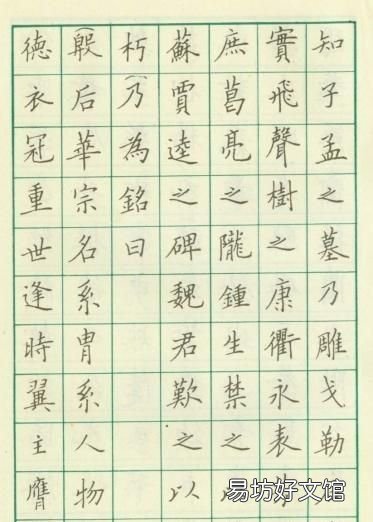 知子孟之墓乃雕戈勒
實飛聲樹之康衢永表
庶葛亮之隴鍾生禁之
蘇賈逵之碑魏君歎之以
朽(乃為銘曰
(殷后華宗名系胄系人物
德衣冠重世逢時翼主膺
易坊好文馆